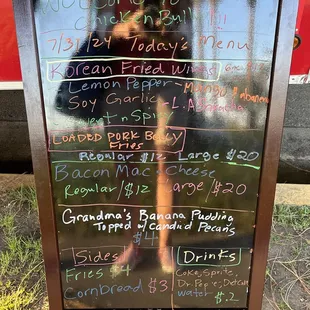 Welcome to
Chicken Bull!!!
7/31/24 Today's Menu
Korean Fried Wings
Lemon Pepper - Mango Habanero
Soy Garlic - L.A
Sweet n Spicy
LOADED PORK BELLY
Fries
Regular $12 Large $20
Bacon Mac-Cheese
Regular/$12 Large/$20
Grandma's Banana Pudding
Topped w/ Candied Pecans
$4
Sides
Fries $4
Cornbread $3
Drinks
Coke, Sprite,
Dr. Pepper, Diet Coke
Water $.2